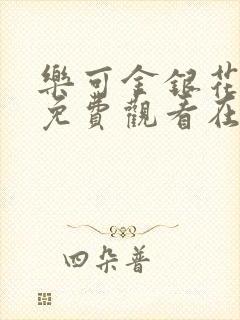 樂可金銀花
免費觀看在
四朵普